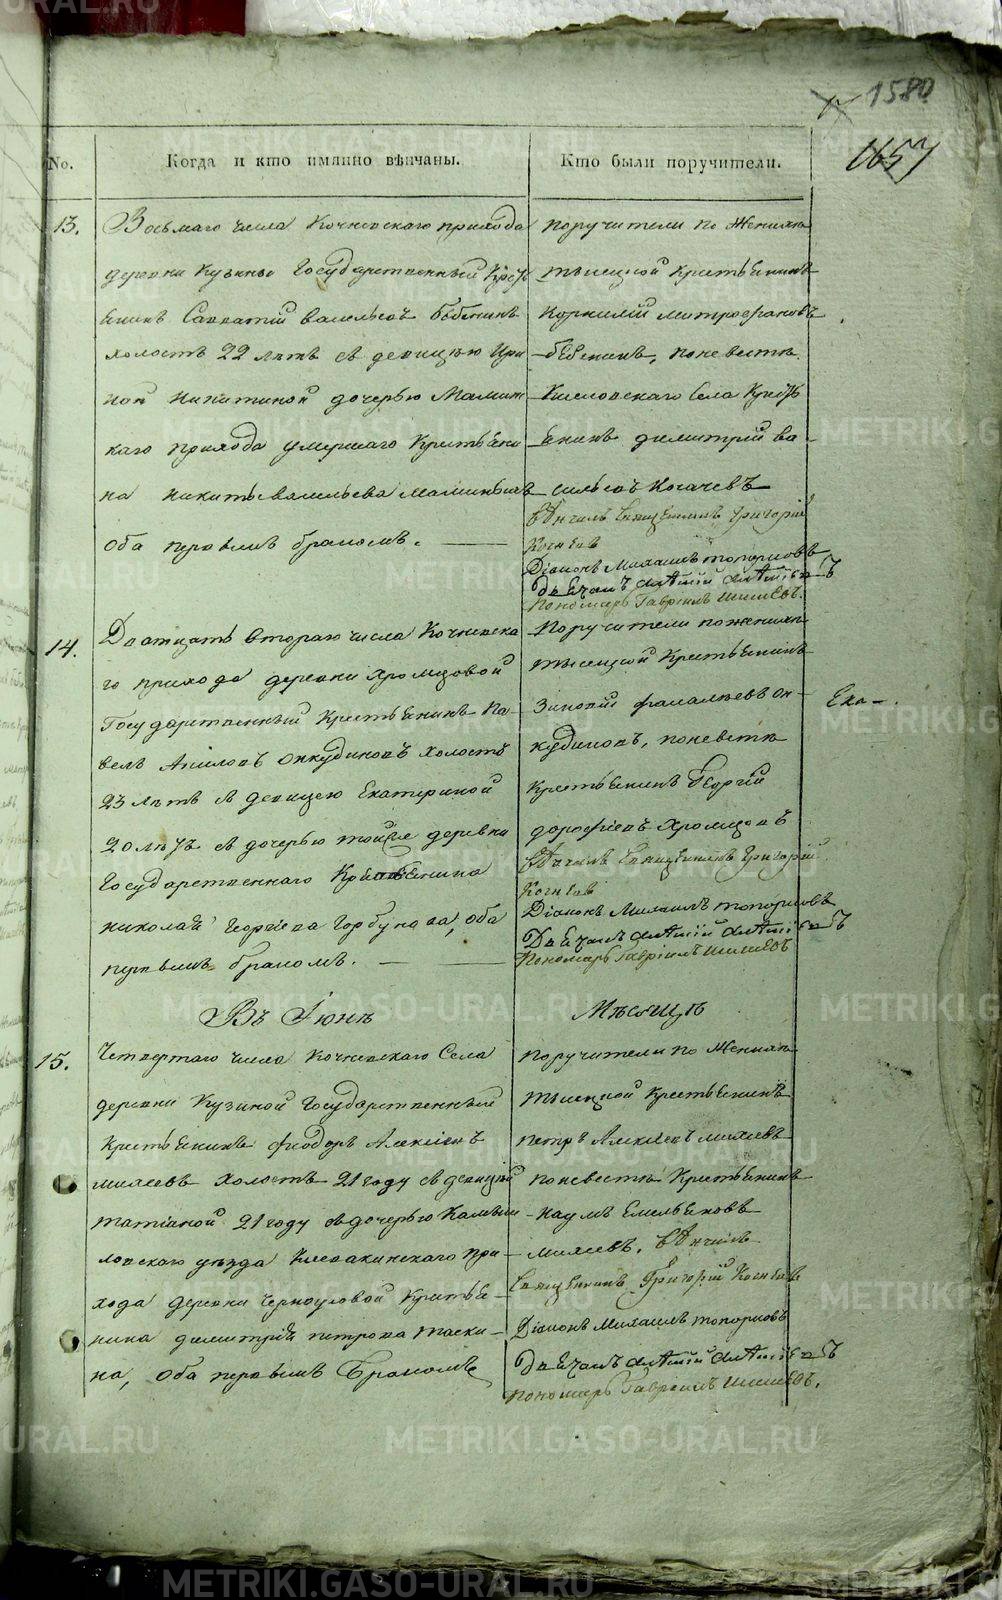 1580
1657
No. Когда и кто имянно вѣнчаны. Кто были поручители.
13. Восьмаго числа Кочневскаго прихода
деревни Кузиной Государственный Кресть
янинъ Савватий Васильевъ Бебенинъ
холостъ 22 лѣтъ съ девицею Ири
ной Никитиной дочерью Мамин
скаго прихода умершаго Крестьяни
на Никиты Васильева
оба первымъ бракомъ.
поручители по Женихѣ
тысецкой Крестьянинъ
Корнилий Митрофановъ
Бебенинъ, по невестѣ
Кисловскаго Села Кресть
янинъ Димитрий Ва-
сильевъ Косачевъ
Вѣнчалъ Священникъ Григорий
Кочневъ
Діаконъ Михаилъ Топорковъ
Дьячекъ
Пономарь Гаврiилъ Шишевъ.
14. Дватцать втораго числа Кочневска
го прихода деревни Хромцовой
Государственный Крестьянинъ Па-
велъ Оккудиновъ холостъ
23 лѣтъ съ девицею Екатериной
20 лѣтъ съ дочерью той же деревни
Государственнаго Крестьянина
Николая Георгiева Горбунова, оба
первымъ бракомъ.
Поручители по женихѣ
тысецкой Крестьянинъ
Зиновий Фамалѣевъ Ок-
кудиновъ, по невестѣ
крестьянинъ Георгий
Дорофѣевъ Хромцовъ
Вѣнчалъ Священникъ Григорий
Кочневъ
Діаконъ Михаилъ Топорковъ
Дьячекъ
Пономарь Гаврiилъ Шишевъ
Въ Іюнѣ Мѣсяцѣ
15. Четвертаго числа Кочневскаго Села
деревни Кузиной Государственный
Крестьянинъ Феодоръ Алексiевъ
Миляевъ холостъ 21 году съ девицей
Татiаной 21 году съ дочерью Камыш
ловскаго уѣзда Клевакинскаго при-
хода деревни Черноусовой Крестья-
нина Димитрiя Петрова Таски-
на, оба первымъ Бракомъ
поручители по Женихѣ
тысецкой Крестьянинъ
Петръ Алексiевъ Миляевъ
по невестѣ Крестьянинъ
Наумъ Емельяновъ
Миляевъ. Вѣнчалъ
Священникъ Григорiй Кочневъ
Діаконъ Михаилъ Топорковъ
Дьячекъ
Пономарь Гаврiилъ Шишевъ.
METRIKI.GASO-URAL.RU